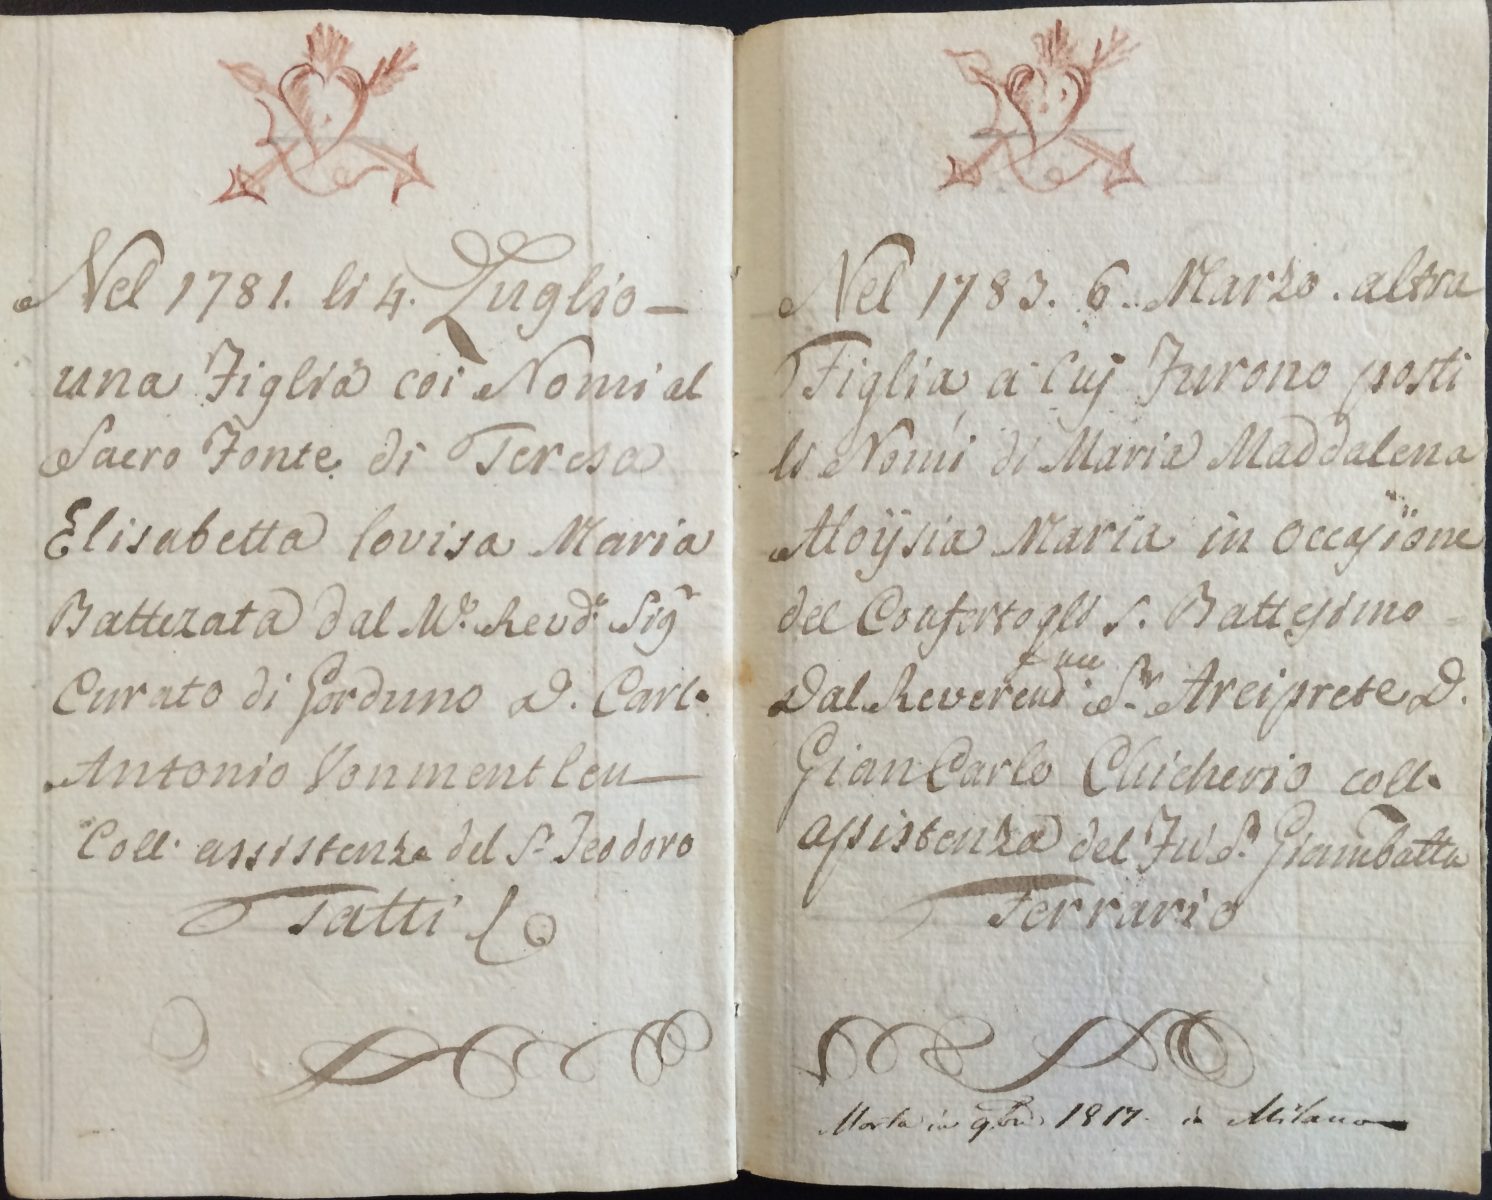 Nel 1781. li 4. Luglio -
una Figlia coi Nomi al
Sacro Fonte di Teresa
Elisabetta Lovisa Maria
Battezata dal M.º Revd.º Sig.r
Curato di Gorduno D. Carl.º
Antonio Vonmentlen
Coll' assistenza del S.r Teodoro
Tatti
Nel 1783. 6. Marzo. altra
Figlia a Cuj Furono posti
li Nomi di Maria Maddalena
Aloÿsia Maria in occasione
del Confertogli S. Battesimo
Dal Reverend.mo S.r Arciprete D.
Gian Carlo Chicherio coll'
assistenza del Fu S.r Giambatta
Ferrario
Morta in 9bre 1817. in Milano